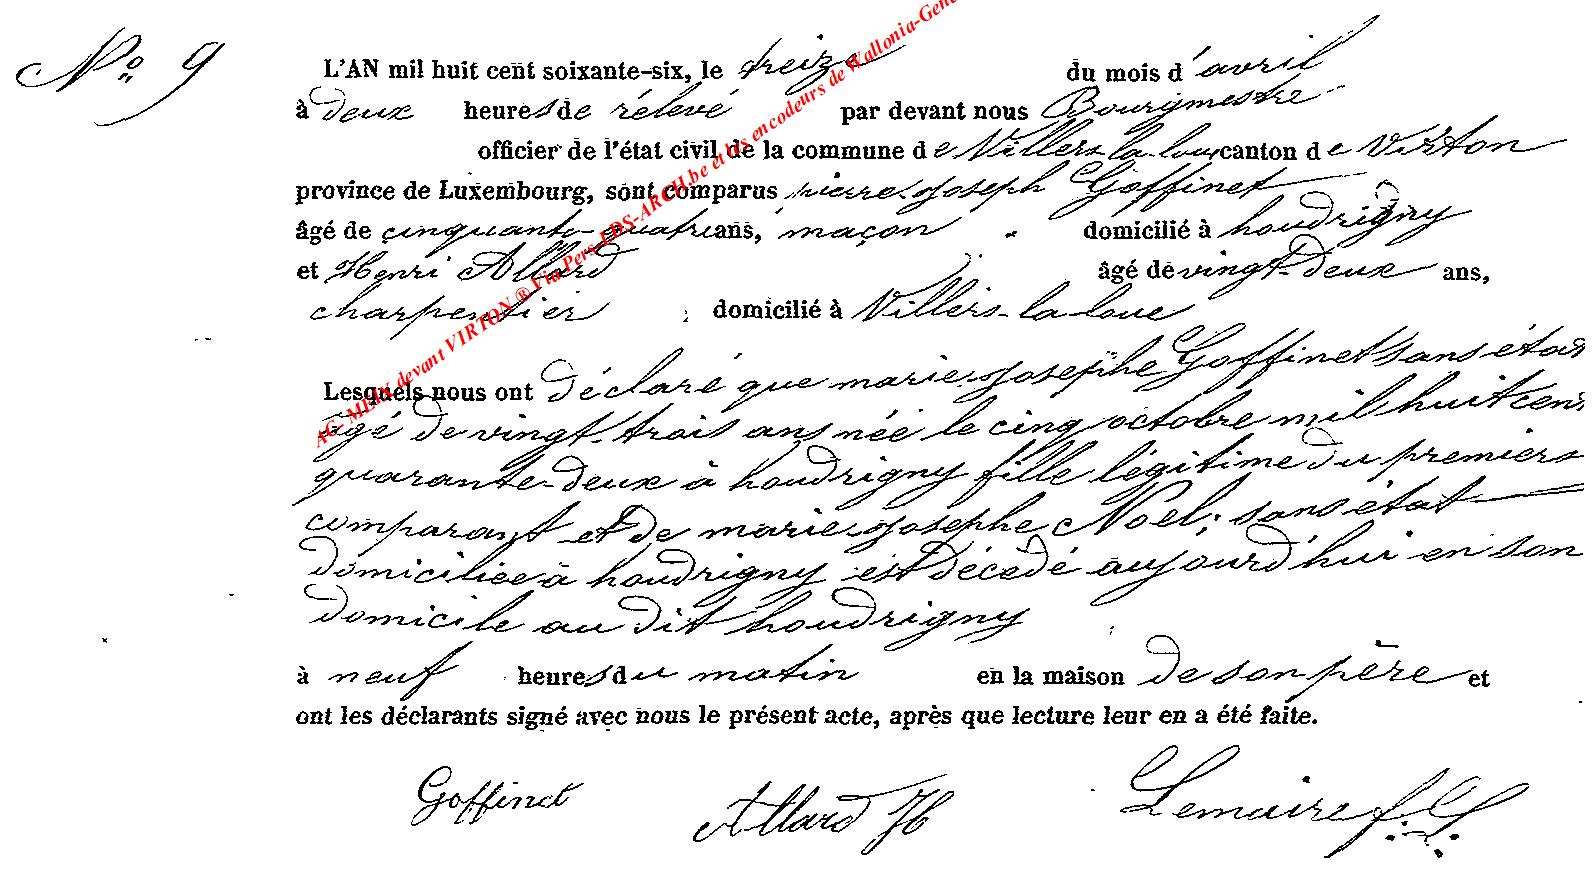 N° 9
L'AN mil huit cent soixante-six, le treize du mois d'avril
à deux heures de rélevé par devant nous Bourgmestre
officier de l'état civil de la commune de Villers-la-loue canton de Virton
province de Luxembourg, sont comparus pierre-joseph Goffinet
âgé de cinquante-quatre ans, maçon domicilié à houdrigny
et Henri Allard âgé de vingt-deux ans,
charpentier domicilié à Villers-la-loue
Lesquels nous ont déclaré que marie-josephe Goffinet sans état
agé de vingt-trois ans née le cinq octobre mil huit cent
quarante-deux à houdrigny fille légitime du premiers
comparant et de marie-josephe Noel; sans état
domiciliée à houdrigny est décédé aujourd'hui en son
domicile au dit houdrigny
à neuf heures du matin en la maison de son père et
ont les déclarants signé avec nous le présent acte, après que lecture leur en a été faite.
Goffinet Allard H Lemaire f. L
AG MDN devant VIRTON ® Via Pers-EDS-ARCH.be et les encodeurs de Wallonia-Gene